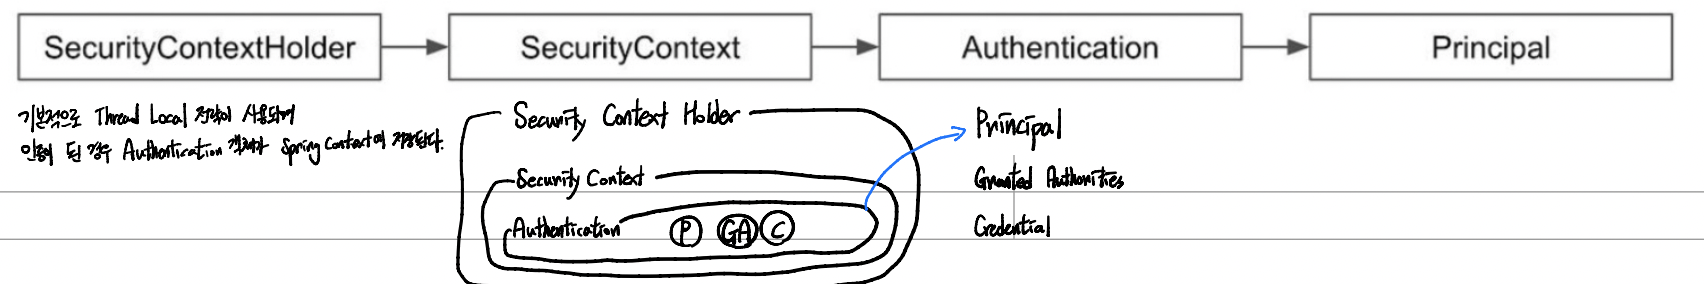 SecurityContextHolder
SecurityContext
Authentication
Principal
기본적으로 Thread Local 전략이 사용되며
인증이 된 경우 Authentication 객체가 Spring Context에 저장된다.
Security Context Holder
Security Context
Authentication P GA C
Principal
Granted Authorities
Credential